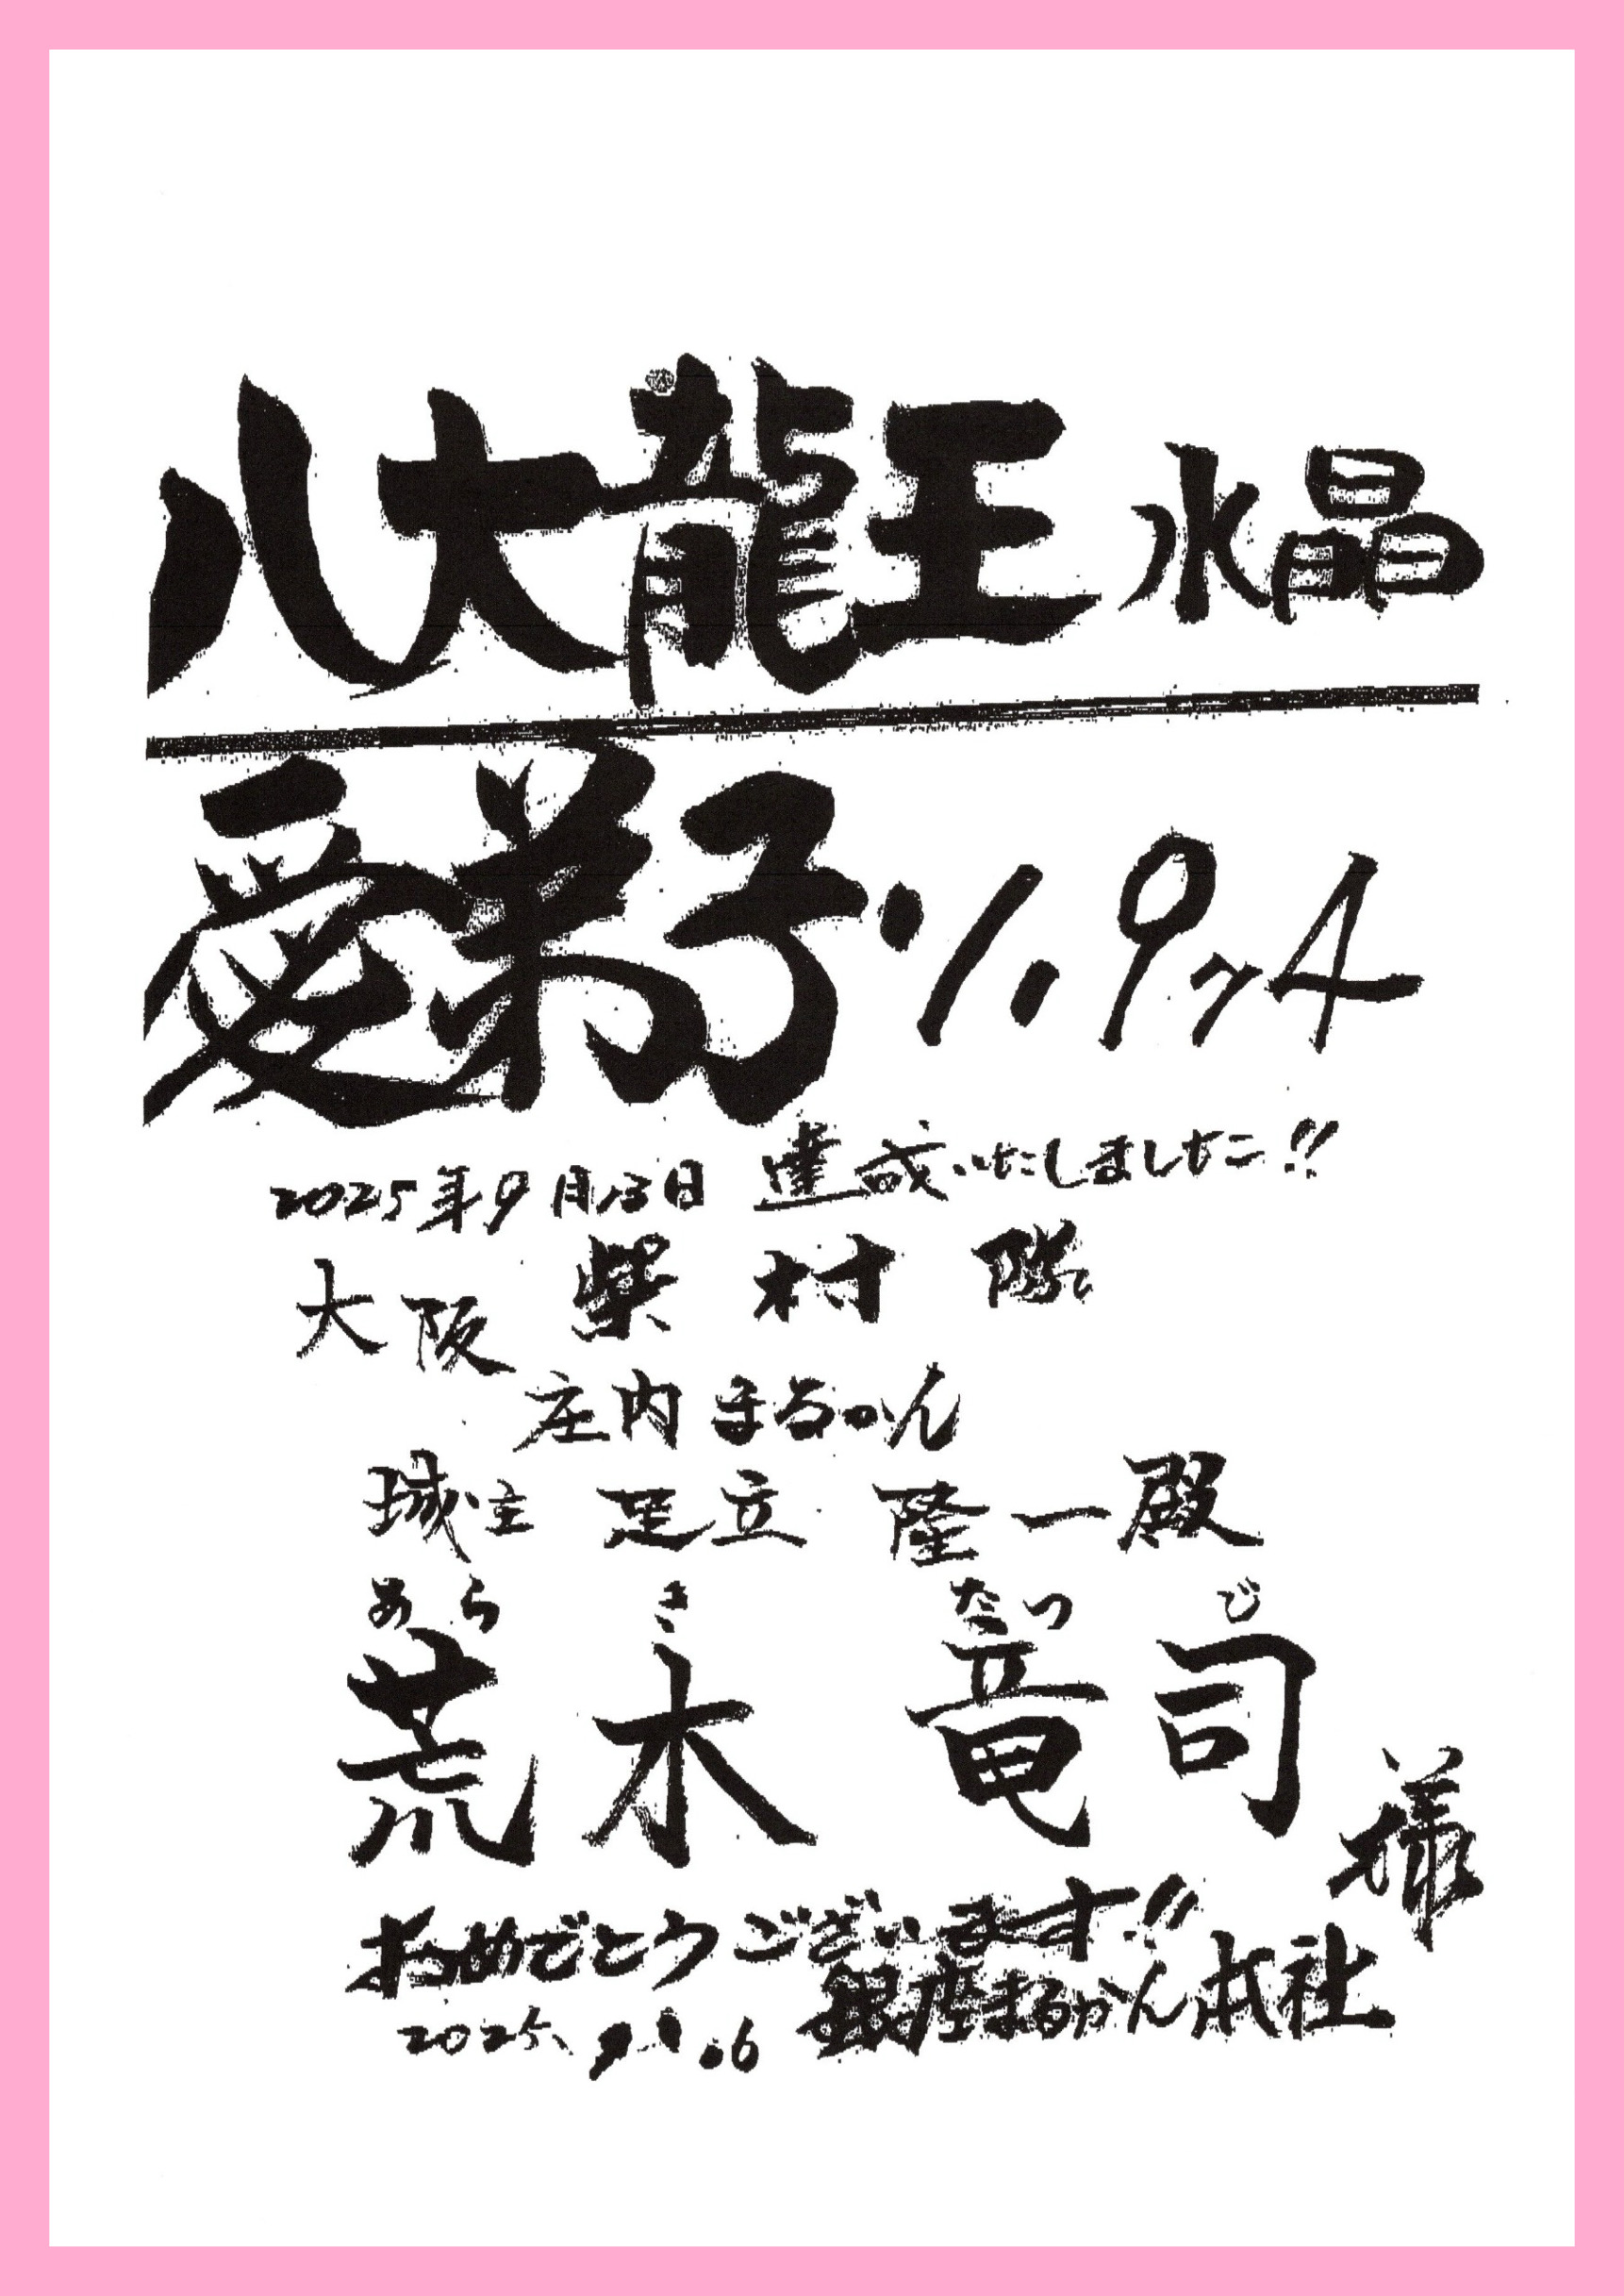 八大龍王 水晶
愛弟子
2025年9月13日 達成いたしました!!
大阪 柴村隊
庄内まるかん
城主 足立 隆一殿
あら き たつ じ
荒木 竜司 様
おめでとうございます!!
2025. 銀座まるかん本社